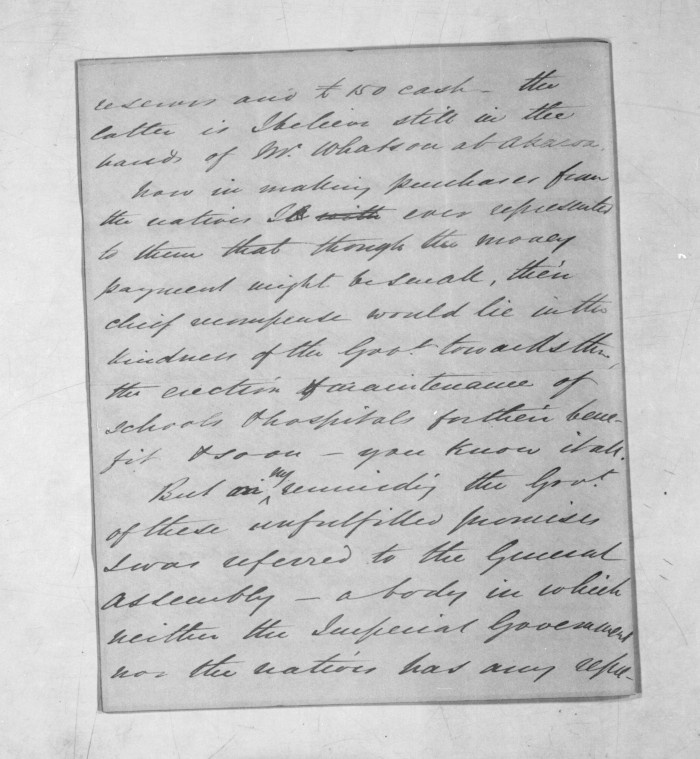 reserves and £150 cash – the
latter is I believe still in the
hands of Mr. Whatson at Akaroa.
Now in making purchases from
the natives I ever represented
to them that though the money
payment might be small, their
chief recompense would lie in the
kindness of the Govt. towards them,
the erection & maintenance of
schools & hospitals for their bene-
fit & so on – you know it all.
But on my reminding the Govt.
of these unfulfilled promises
I was referred to the General
Assembly – a body in which
neither the Imperial Government
nor the natives has any repre-